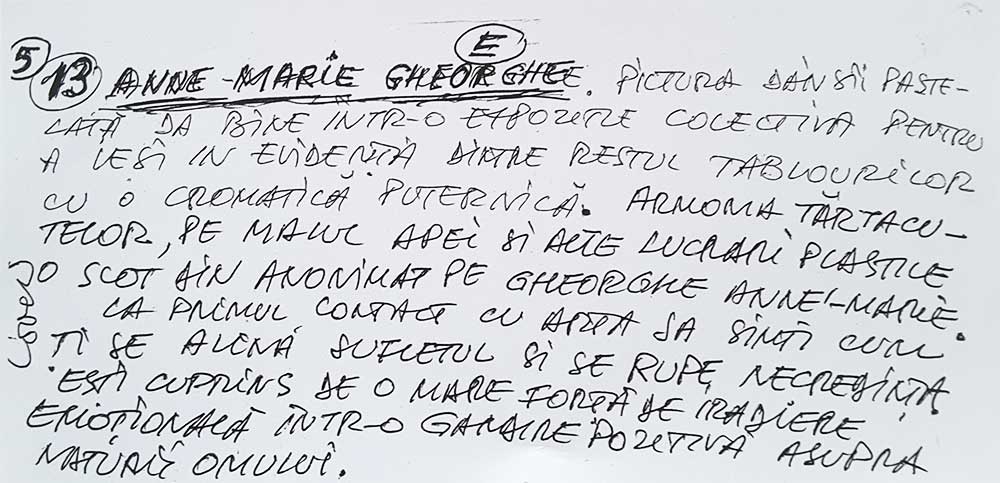 E
5 13 ANNE-MARIE GHEORGHE. PICTURA DÂNSII PASTE-
LATĂ DA BINE INTR-O EXPOZIȚIE COLECTIVA PENTRU
A IEȘI IN EVIDENȚĂ DINTRE RESTUL TABLOURILOR
CU O CROMATICĂ PUTERNICĂ. ARMONIA TĂRTACU-
TELOR, PE MALUL APEI ȘI ALTE LUCRARI PLASTICE
O SCOT DIN ANONIMAT PE GHEORGHE ANNE-MARIE.
LA PRIMUL CONTACT CU ARTA SA SIMȚI CUM
ȚI SE ALINĂ SUFLETUL ȘI SE RUPE NECREDINȚA
EȘTI CUPRINS DE O MARE FORȚĂ DE IRADIERE
EMOȚIONALĂ INTR-O GANDIRE POZITIVĂ ASUPRA
NATURII OMULUI.